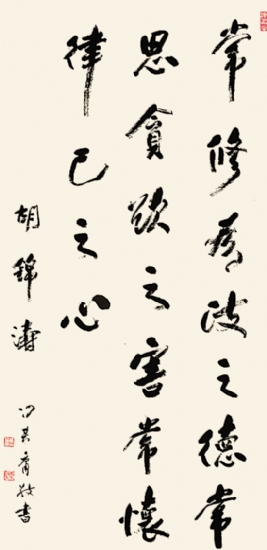 常修為政之德常
思貪欲之害常懷
律己之心
胡錦濤
書